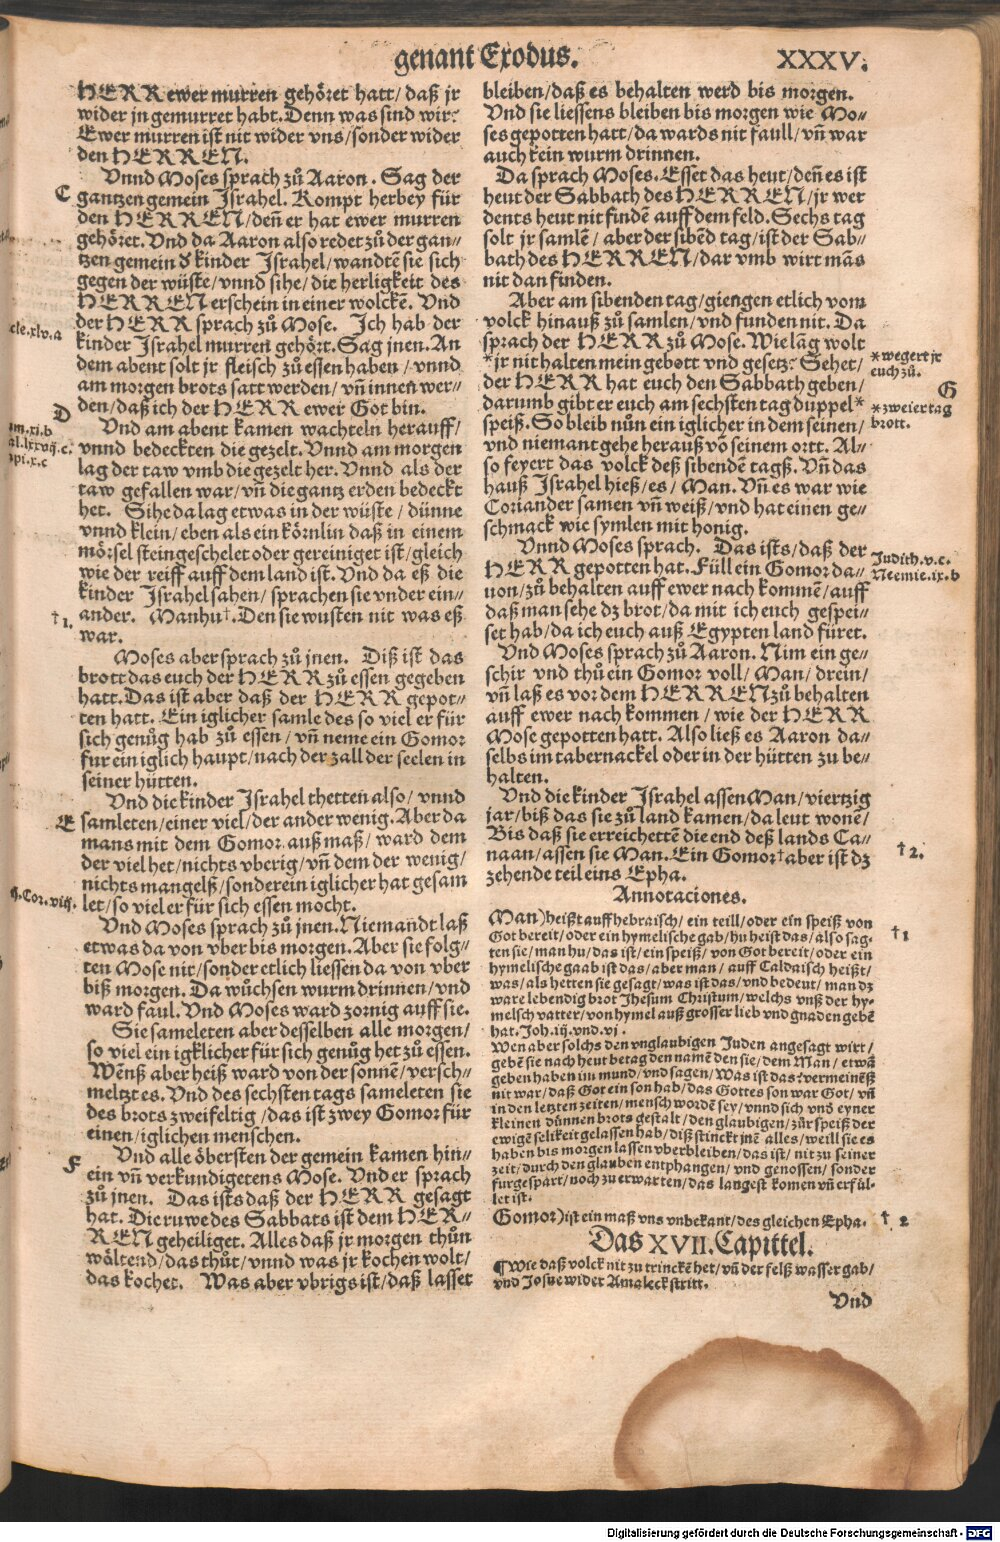 genant Exodus.
XXXV.
HERR ewer murren gehöret hatt/ daß jr
wider jn gemurret habt. Denn was sind wir?
Ewer murren ist nit wider vns/ sonder wider
den HERREN.
Vnnd Moses sprach zů Aaron. Sag der
C
gantzen gemein Israhel. Kompt herbey für
den HERREN/ deñ er hat ewer murren
gehöret. Vnd da Aaron also redet zů der gan⸗
tzen gemein d̄ kinder Israhel/ wandtē sie sich
gegen der wüste/ vnnd sihe/ die herligkeit des
HERREN erschein in einer wolckē. Vnd
der HERR sprach zů Mose. Ich hab der
cle.xlv.a
kinder Israhel murren gehört. Sag jnen. An
dem abent solt jr fleisch zů essen haben/ vnnd
am morgen brots satt werden/ vñ innen wer⸗
den/ daß ich der HERR ewer Got bin.
D
Vnd am abent kamen wachteln herauff/
um.xi.b
al.lxxvij.c.
api.x.c
vnnd bedeckten die gezelt. Vnnd am morgen
lag der taw vmb die gezelt her. Vnnd als der
taw gefallen war/ vñ die gantz erden bedeckt
het. Sihe da lag etwas in der wüste/ dünne
vnnd klein/ eben als ein körnlin daß in einem
mörsel steingeschelet oder gereiniget ist/ gleich
wie der reiff auff dem land ist. Vnd da eß die
kinder Israhel sahen/ sprachen sie vnder ein⸗
†1.
ander. Manhu†. Den sie wusten nit was eß
war.
Moses aber sprach zů jnen. Diß ist das
brott das euch der HERR zů essen gegeben
hatt. Das ist aber daß der HERR gepot⸗
ten hatt. Ein iglicher samle des so viel er für
sich genůg hab zů essen/ vñ neme ein Gomor
fur ein iglich haupt/ nach der zall der seelen in
seiner hütten.
Vnd die kinder Israhel thetten also/ vnnd
E
samleten/ einer viel/ der ander wenig. Aber da
mans mit dem Gomor auß maß/ ward dem
der viel het/ nichts vberig/ vñ dem der wenig/
nichts mangelß/ sonder ein iglicher hat gesam
ij.Cor.viij.
let/ so viel er für sich essen mocht.
Vnd Moses sprach zů jnen. Niemandt laß
etwas da von vber bis morgen. Aber sie folg⸗
ten Mose nit/ sonder etlich liessen da von vber
biß morgen. Da wůchsen wurm drinnen/ vnd
ward faul. Vnd Moses ward zornig auff sie.
Sie sameleten aber desselben alle morgen/
so viel ein igklicher für sich genůg het zů essen.
Wēnß aber heiß ward von der sonnē/ versch⸗
meltzt es. Vnd des sechsten tags sameleten sie
des brots zweifeltig/ das ist zwey Gomor für
einen/ iglichen menschen.
Vnd alle öbersten der gemein kamen hin⸗
F
ein vñ verkundigetens Mose. Vnd er sprach
zů jnen. Das ists daß der HERR gesagt
hat. Die ruwe des Sabbats ist dem HER⸗
REN geheiliget. Alles daß jr morgen thůn
wöltend/ das thůt/ vnnd was jr kochen wolt/
das kochet. Was aber vbrigs ist/ daß lasset
bleiben/ daß es behalten werd bis morgen.
Vnd sie liessens bleiben bis morgen wie Mo⸗
ses gepotten hatt/ da wards nit faull/ vñ war
auch kein wurm drinnen.
Da sprach Moses. Esset das heut/ deñ es ist
heut der Sabbath des HERREN/ jr wer
dents heut nit findē auff dem feld. Sechs tag
solt jr samlē/ aber der sibēd tag/ ist der Sab⸗
bath des HERREN/ dar vmb wirt mās
nit dan finden.
Aber am sibenden tag/ giengen etlich vom
volck hinauß zů samlen/ vnd funden nit. Da
sprach der HERR zů Mose. Wie lāg wolt
*jr nit halten mein gebott vnd gesetz? Sehet/
*wegert jr
euch zů.
der HERR hat euch den Sabbath geben/
G
darumb gibt er euch am sechsten tag düppel*
*zweier tag
brott.
speiß. So bleib nůn ein iglicher in dem seinen/
vnd niemant gehe herauß vō seinem ortt. Al⸗
so feyert das volck deß sibendē tagß. Vñ das
hauß Israhel hieß/ es/ Man. Vñ es war wie
Coriander samen vñ weiß/ vnd hat einen ge⸗
schmack wie symlen mit honig.
Vnnd Moses sprach. Das ists/ daß der
HERR gepotten hat. Füll ein Gomor da⸗
Judith.v.c.
Neemie.ix.b
uon/ zů behalten auff ewer nach kommē/ auff
daß man sehe dz brot/ da mit ich euch gespei⸗
set hab/ da ich euch auß Egypten land füret.
Vnd Moses sprach zů Aaron. Nim ein ge⸗
schir vnd thů ein Gomor voll/ Man/ drein/
vñ laß es vor dem HERREN zů behalten
auff ewer nach kommen/ wie der HERR
Mose gepotten hatt. Also ließ es Aaron da⸗
selbs im tabernackel oder in der hütten zu be⸗
halten.
Vnd die kinder Israhel assen Man/ viertzig
jar/ biß das sie zů land kamen/ da leut wonē/
Bis daß sie erreichettē die end deß lands Ca⸗
naan/ assen sie Man. Ein Gomor† aber ist dz
†2.
zehende teil eins Epha.
Annotaciones.
Man) heißt auff hebraisch/ ein teill/ oder ein speiß von
†1
Got bereit/ oder ein hymelische gab/ hu heist das/ also sag⸗
ten sie/ man hu/ das ist/ ein speiß/ von Got bereit/ oder ein
hymelische gaab ist das/ aber man/ auff Caldaisch heißt/
was/ als hetten sie gesagt/ was ist das/ vnd bedeut/ man dz
ware lebendig brot Jhesum Christum/ welchs vnß der hy⸗
melsch vatter/ von hymel auß grosser lieb vnd gnaden gebē
hat. Joh.iij.vnd.vj.
Wen aber solchs den vnglaubigen Juden angesagt wirt/
gebē sie nach heut betag den namē den sie/ dem Man/ etwā
geben haben im mund/ vnd sagen/ Was ist das? vermeinēß
nit war/ daß Got ein son hab/ das Gottes son war Got/ vñ
in den letzten zeiten/ mensch wordē sey/ vnnd sich vnd̄ eyner
kleinen dünnen brots gestalt/ den glaubigen/ zůr speiß der
ewigē selikeit gelassen hab/ diß stinckt jnē alles/ weill sie es
haben bis morgen lassen vberbleiben/ das ist/ nit zu seiner
zeit/ durch den glauben entphangen/ vnd genossen/ sonder
furgespart/ noch zu erwarten/ das langest komen vñ erfül⸗
let ist.
Gomor) ist ein maß vns vnbekant/ des gleichen Epha.
† 2
Das XVII. Capittel.
¶ Wie daß volck nit zu trinckē het/ vñ der felß wasser gab/
vnd Josue wider Amaleck stritt.
Vnd
Digitalisierung gefördert durch die Deutsche Forschungsgemeinschaft - DFG